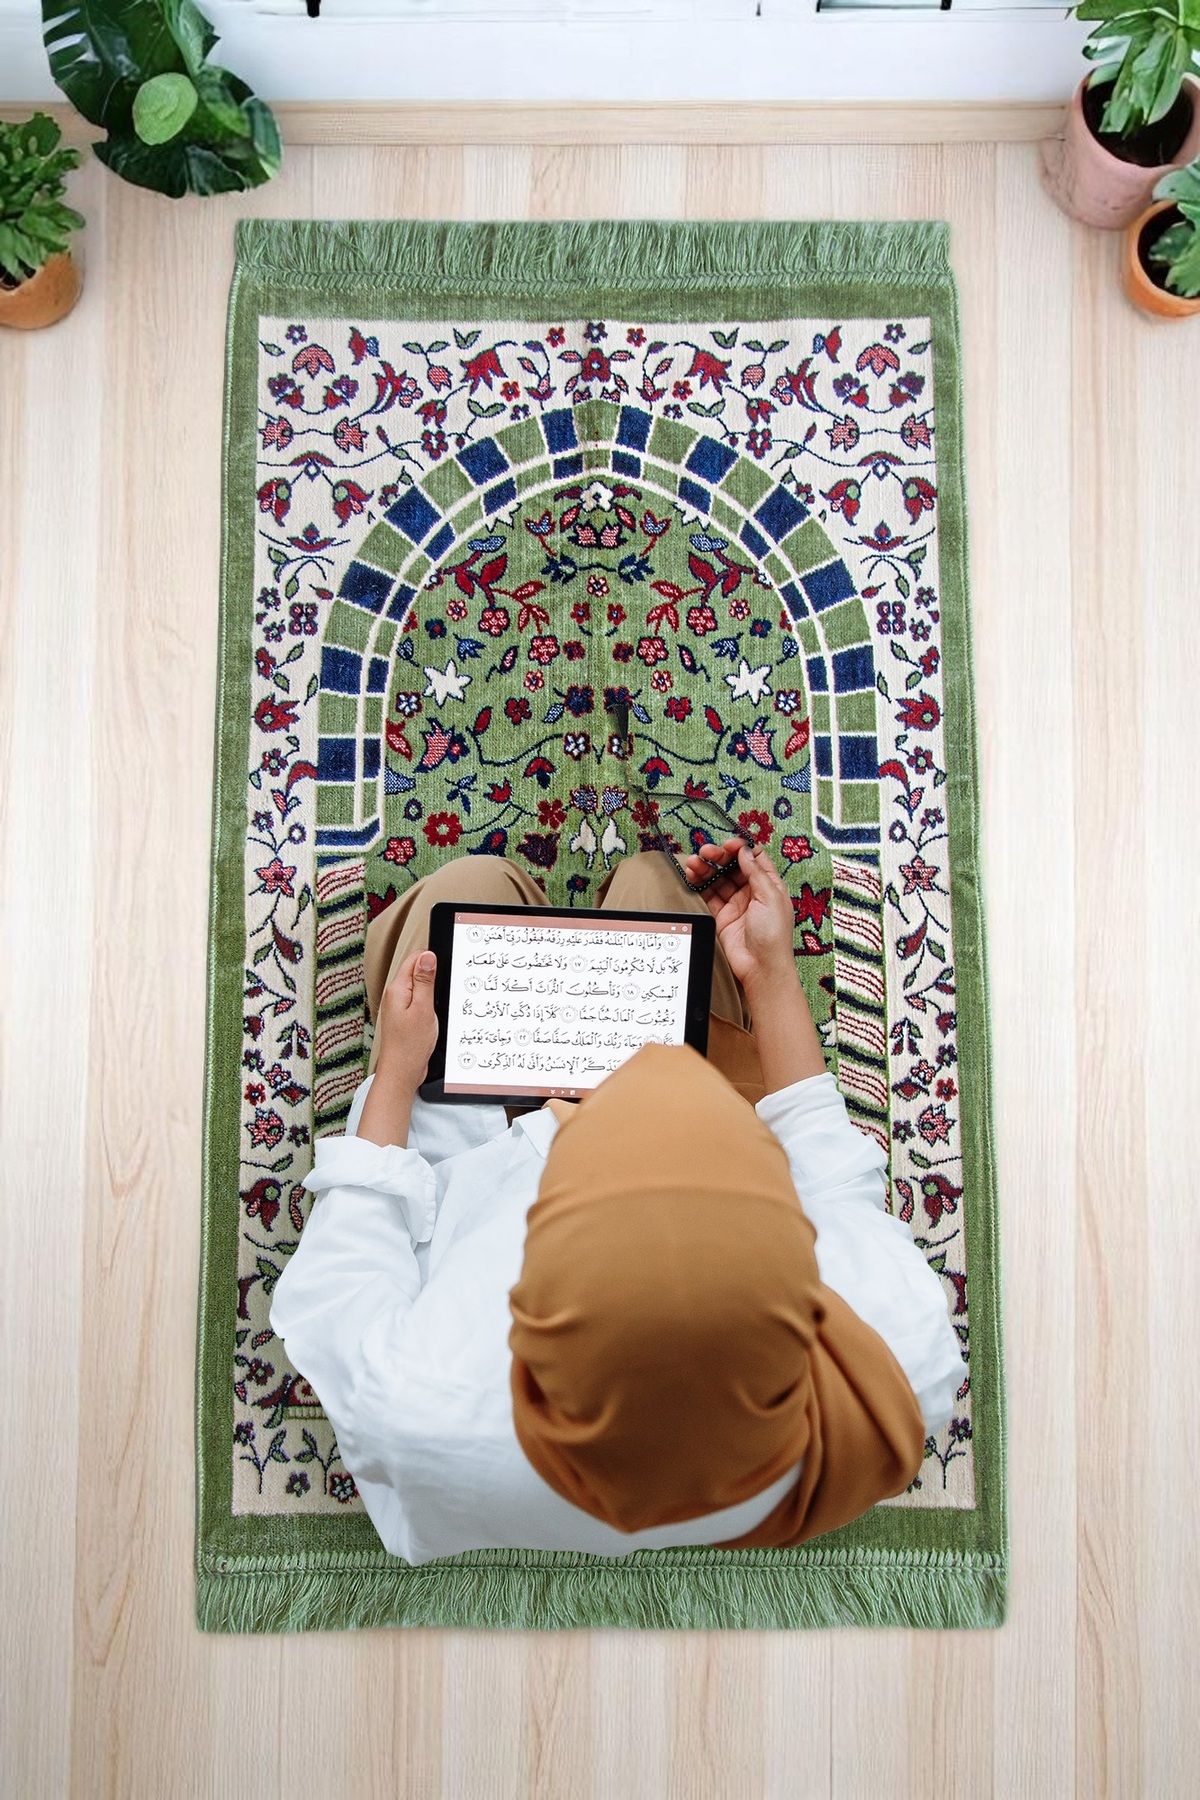 ١٥ وَأَمَّآ إِذَا مَا ٱبْتَلَىٰهُ فَقَدَرَ عَلَيْهِ رِزْقَهُۥ فَيَقُولُ رَبِّىٓ أَهَـٰنَنِ ١٦
كَلَّا ۖ بَل لَّا تُكْرِمُونَ ٱلْيَتِيمَ ١٧ وَلَا تَحَـٰٓضُّونَ عَلَىٰ طَعَامِ
ٱلْمِسْكِينِ ١٨ وَتَأْكُلُونَ ٱلتُّرَاثَ أَكْلًا لَّمًّا ١٩
وَتُحِبُّونَ ٱلْمَالَ حُبًّا جَمًّا ٢٠ كَلَّآ إِذَا دُكَّتِ ٱلْأَرْضُ دَكًّا
دَكًّا ٢١ وَجَآءَ رَبُّكَ وَٱلْمَلَكُ صَفًّا صَفًّا ٢٢ وَجِا۟ىٓءَ يَوْمَئِذٍۭ
يَتَذَكَّرُ ٱلْإِنسَـٰنُ وَأَنَّىٰ لَهُ ٱلذِّكْرَىٰ ٢٣